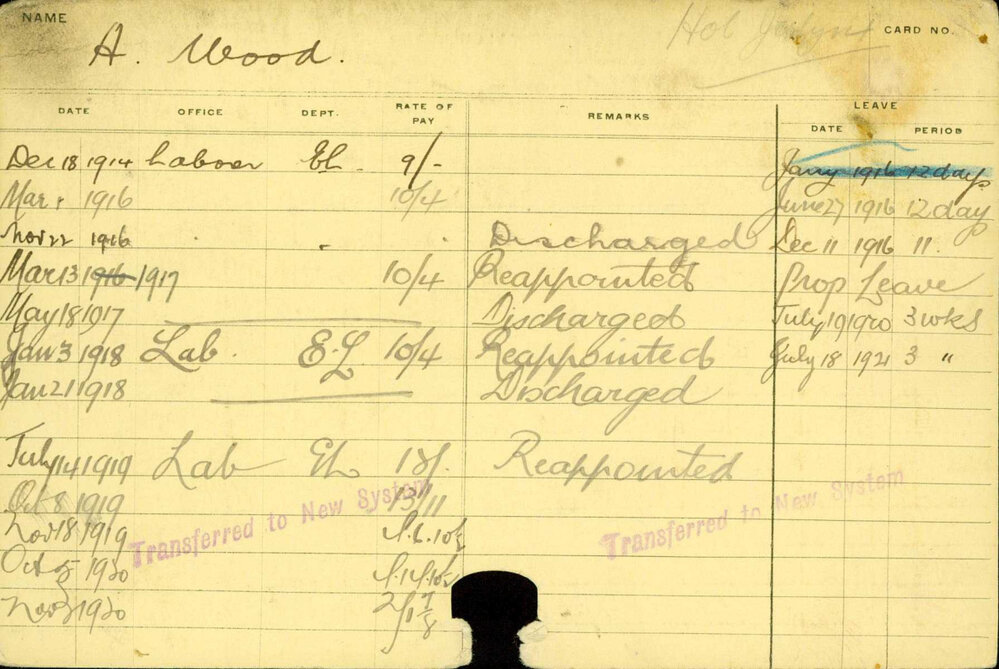 NAME
A. Wood.
CARD NO.
DATE OFFICE DEPT. RATE OF PAY REMARKS LEAVE
DATE PERIOD
Dec 18 1914 Laborer EL 9/- Jany 1916 12 days
Mar 1 1916 10/4 June 27 1916 12 day
Nov 22 1916 Discharged Dec 11 1916 11.
Mar 13 1916 1917 10/4 Reappointed Prop Leave
May 18 1917 Discharged July 19 1920 3 wks
Jan 3 1918 Lab. E.L 10/4 Reappointed July 18 1921 3 "
Jan 21 1918 Discharged
July 14 1919 Lab EL Reappointed
Oct 8 1919 13/11
Transferred to New System Transferred to New System
Nov 18 1919
Oct 5 1920
Nov 1920